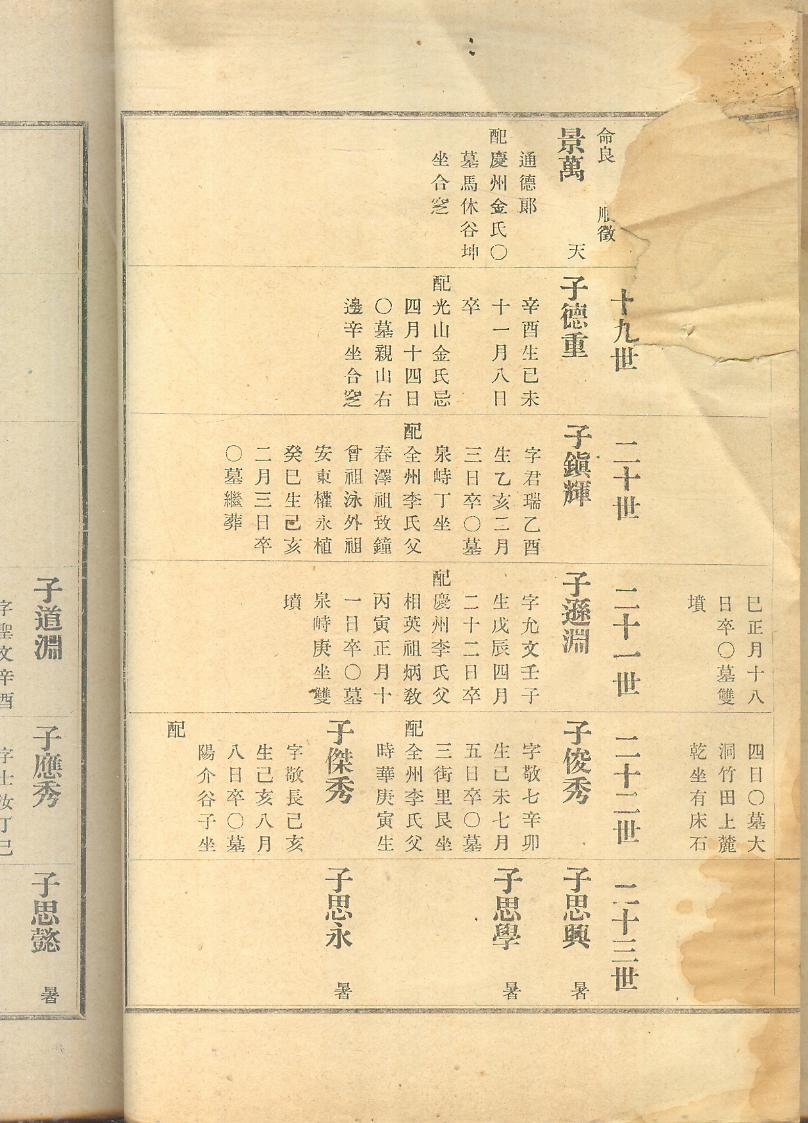 命良
順徵
景萬
天
通德郞
配慶州金氏〇
墓馬休谷坤
坐合窆
十九世
子德重
辛酉生已未
十一月八日
卒
配光山金氏忌
四月十四日
〇墓親山右
邊辛坐合窆
二十世
子鎭輝
字君瑞乙酉
生乙亥二月
三日卒〇墓
泉峙丁坐
配全州李氏父
春澤祖致鐘
曾祖泳外祖
安東權永植
癸巳生己亥
二月三日卒
〇墓繼葬
巳正月十八
日卒〇墓雙
墳
二十一世
子遜淵
字允文壬子
生戊辰四月
二十二日卒
配慶州李氏父
相英祖炳敎
丙寅正月十
一日卒〇墓
泉峙庚坐雙
墳
四日〇墓大
洞竹田上麓
乾坐有床石
二十二世
子俊秀
字敬七辛卯
生己未七月
五日卒〇墓
三街里艮坐
配全州李氏父
時華庚寅生
子傑秀
字敬長己亥
生己亥八月
八日卒〇墓
陽介谷子坐
配
二十三世
子思興
暑
子思學
暑
子思永
暑
子道淵
字聖文辛酉
子應秀
字士汝丁巳
子思懿
暑